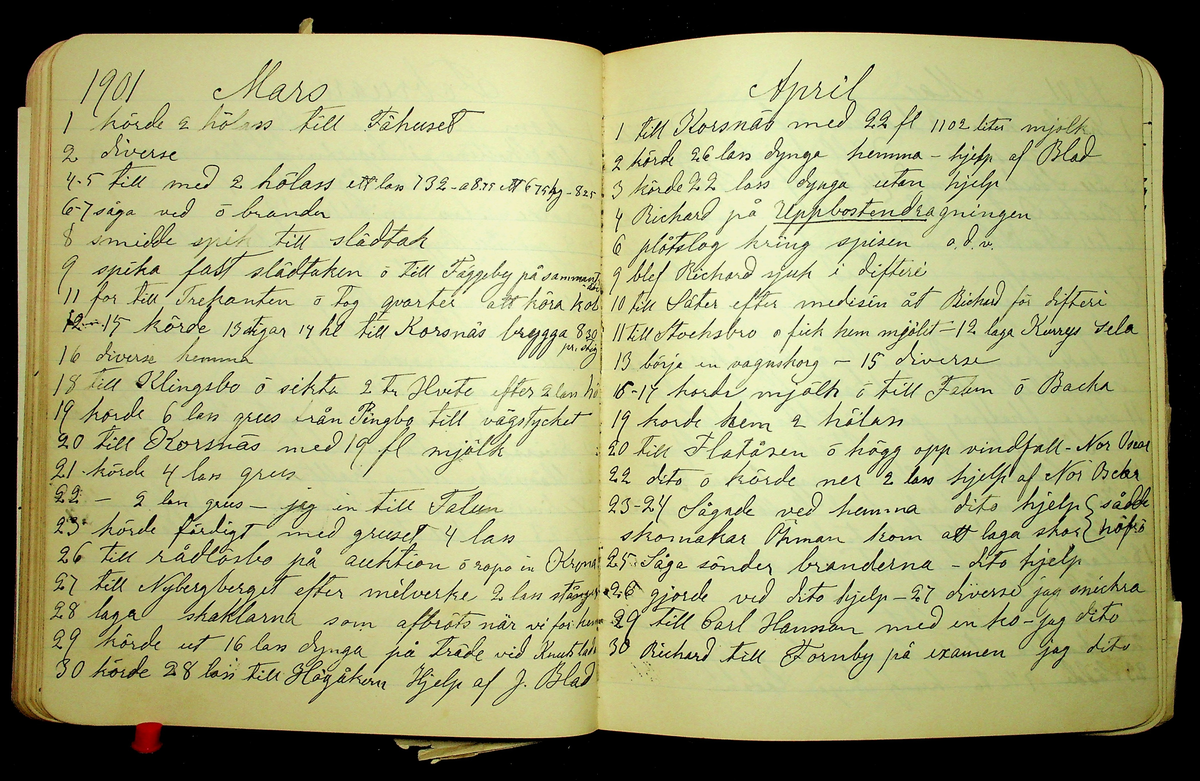 1901 Mars
1 körde 2 hölass till Fähuset
2 diverse
4-5 till med 2 hölass ett lass 732 - a 8.75 ett 675 kg - 8.25
6-7 såga ved ö brander
8 smidde spik till slädtak
9 spika fast slädtaken ö till Täggeby på
11 for till Trekanten ö tog qvarter att köra kol
12-15 körde 13 stigar 14 hl till Korsnäs brygga 8.30
pr. stig
16 diverse hemma
18 till Klingsbo ö sikta 2 Tr Hvete efter 2 lass hö
19 körde 6 lass grus från Pingbo till vägstycket
20 till Korsnäs med 19 fl mjölk
21 körde 4 lass grus
22 - 2 lass grus - jag in till Falun
23 körde färdigt med gruset 4 lass
26 till rådlösbo på auktion ö ropa in
27 till Nybergberget efter milverke 2 lass
28 laga skaklarna som afbröts när vi for hem
29 körde ut 16 lass dynga på träde vid
30 körde 28 lass till Högåkern Hjelp af J. Blad
April
1 till Korsnäs med 22 fl 1102 liter mjölk
2 körde 26 lass dynga hemma - hjelp af Blad
3 körde 22 lass dynga utan hjelp
4 Richard på Uppbostendragningen
6 plåtslog kring spisen o.d.v.
9 blef Richard sjuk i difteri
10 till Säter efter medisin åt Richard för difteri
11 till Stocksbro o fick hem mjölet - 12 laga Kurrys sela
13 börja en vagnskorg - 15 diverse
15-17 körde mjölk ö till Falun ö Backa
19 körde hem 2 hölass
20 till Flatåsen ö högg opp vindfall - Nor Oscar
22 dito ö körde ner 2 lass hjelp af Nor Oscar
23-24 Sågade ved hemma dito hjelp { sådde
skomakar Öhman kom att laga skor { höfrö
25 Såga sönder branderna - dito hjelp
26 gjorde ved dito hjelp - 27 diverse jag snickra
29 till Carl Hansson med en ko - jag dito
30 Richard till Tornby på examen jag dito